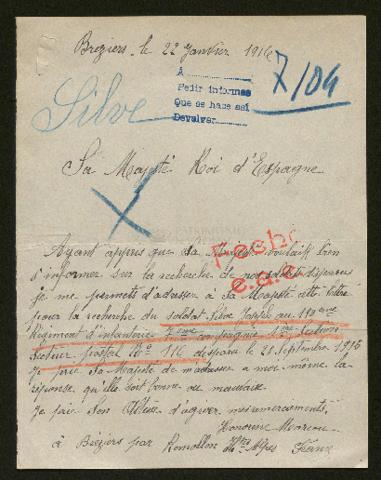 Bréziers, le 22 Janvier 1916
7/04
A
Pedir informes
Que se hace así
Devolver
Silve
Sa Majesté Roi d'Espagne
Ayant appris que sa Majesté voulait bien
s'informer sur la recherche de nos soldats disparus
je me permets d'adresser à Sa Majesté cette lettre
pour la recherche du soldat Silve Joseph au
Régiment d'infanterie 7ème compagnie
Secteur postal N° 112 disparu le 21 Septembre 1916
Je prie Sa Majesté de m'adresser à moi même la
réponse, qu'elle soit bonne ou mauvaise.
Je prie Son Altesse d'agréer mes remerciements,
Honorine
à Bréziers par Remollon Htes Alpes France
Fecho